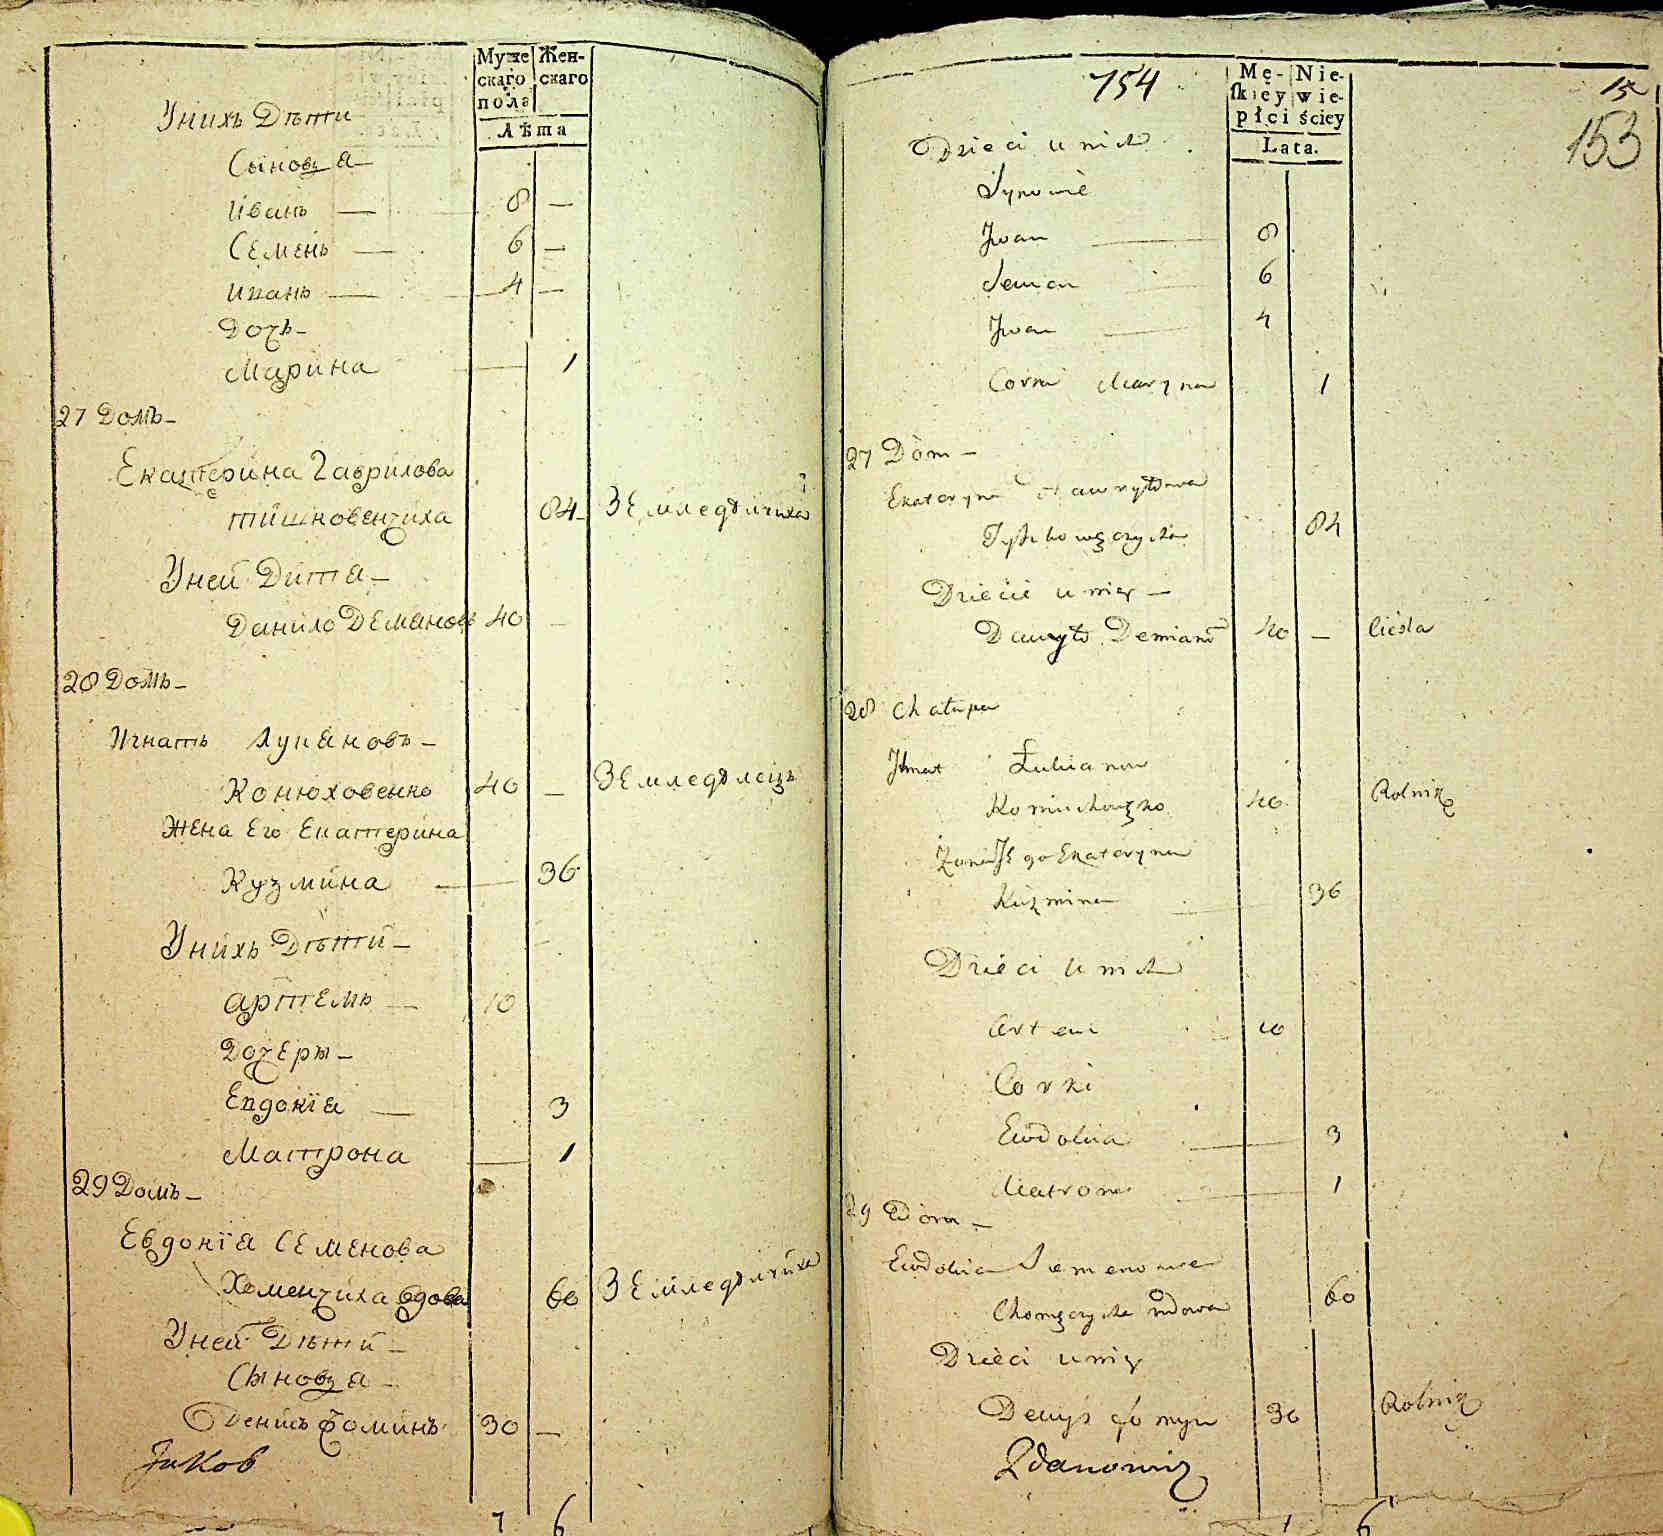 Муже
скаго
пола
Жен-
скаго
Лѣта
Унихъ Дѣти
Сыновья
Иванъ — 8 —
Семенъ — 6 —
Иванъ — 4 —
Дочь-
Марина — 1
27 Домъ-
Екатерина Гаврилова
Тишковенчиха 84- Землед‍ѣлчиха
Уней Дита-
Данило Демановъ 40 —
28 Домъ-
Игнатъ Лукановъ-
Конюховенко 40 — Земледѣлецъ
Жена Его Екатерина
Кузмина — 36
Унихъ Дѣти-
Артемъ — 10
Дочеры-
Евдокїа — 3
Матрона — 1
29 Домъ-
Евдокїа Семенова
Хоменчиха вдова 60 Земледѣлчиха
Уней Дѣти-
Сыновья-
Денисъ Фоминъ 30 —
7 6
154
Mę-
skiey
płci
Nie-
wie-
ściey
Lata.
153
Dzieci u nich
Synowie
Jwan — 8
Semen 6
Jwan — 4
Corka Maryna 1
27 Dom-
Ekateryna Hawryłowa
Tyszkowęczycha 84
Dziecie u niey-
Danyło Demianow 40 — Ciesla
28 Chałupa
Jhnat Łukianow
Koniuchowęko 40 Rolnik
Zona Jego Ekateryna
Kuzmina — 36
Dzieci u nich
Artem 10
Corki
Ewdokia — 3
Matrona — 1
29 Dom-
Ewdokia Semenowa
Chomęczycha wdowa 60
Dzieci u niey
Denys Fomyn 30 Rolnik
6